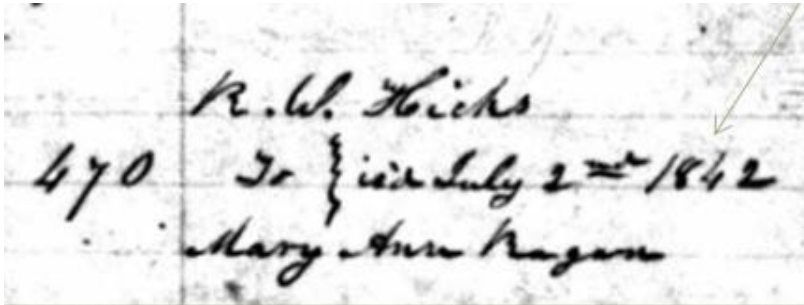 R. W. Hicks
470 To } isd July 2nd 1842
Mary Ann Ragan